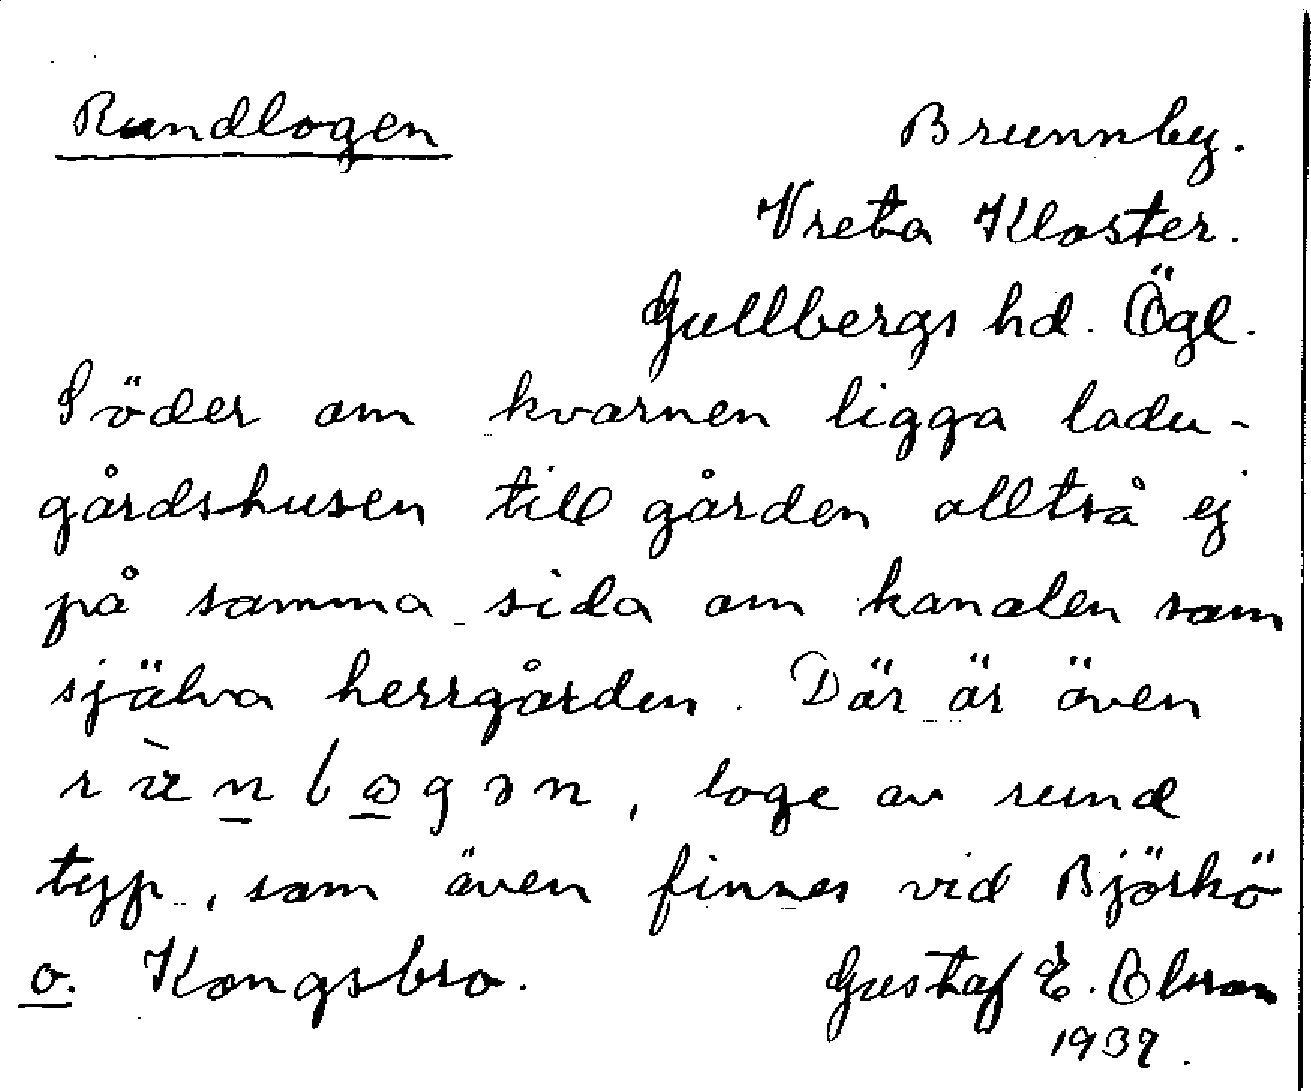 Rundlogen
Brunnby.
Vreta Kloster.
Gullbergs hd. Ögl.
Söder om kvarnen ligga ladu-
gårdshusen till gården alltså ej
på samma sida om kanalen som
själva herrgården. Där är även
loge av rund
typ, som även finnes vid Björkö
o. Kongsbro.
Gustaf E. Olsson
1937.